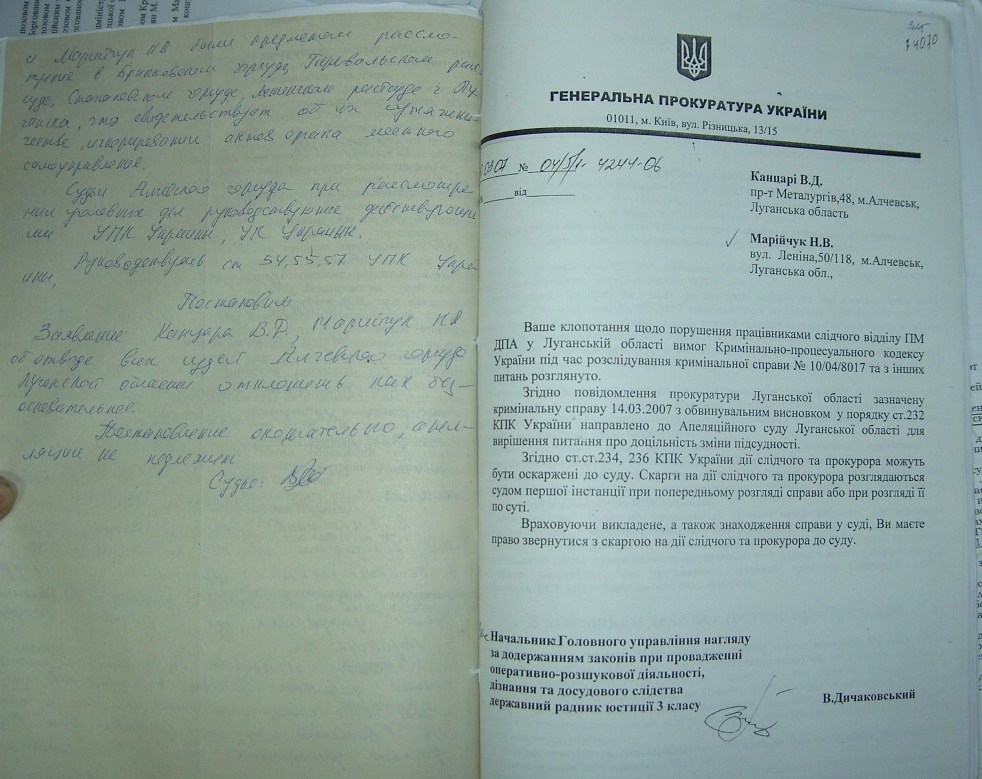 и Марийчук НВ были предметом рассмо-
трение в Брянковском горсуде, Перевальском рай
суде, Стахановском горсуде, Ленинском райсуде г. Лу
ганска, что свидетельствует об их сутяжни
честве, игнорировании актов органа местного
самоуправление.
Судьи Алчевского горсуда при рассмотре
нии уголовных дел руководствуются действующи
ми УПК Украины, УК Украины.
Руководствуясь ст 54,55,57 УПК Укра
ины,
Постановил
Заявление Канцара В.Д., Марийчук НВ
об отводе всех судей Алчевского горсуда
Луганской области отклонить как без-
основательное.
Постановление окончательно, апел-
ляции не подлежит
Судья:
14070
ГЕНЕРАЛЬНА ПРОКУРАТУРА УКРАЇНИ
01011, м. Київ, вул. Різницька, 13/15
№ 04/5/1- 4244-06
від
Канцарі В.Д.
пр-т Металургів,48, м.Алчевськ,
Луганська область
Марійчук Н.В.
вул. Леніна,50/118, м.Алчевськ,
Луганська обл.,
Ваше клопотання щодо порушення працівниками слідчого відділу ПМ
ДПА у Луганській області вимог Кримінально-процесуального кодексу
України під час розслідування кримінальної справи № 10/04/8017 та з інших
питань розглянуто.
Згідно повідомлення прокуратури Луганської області зазначену
кримінальну справу 14.03.2007 з обвинувальним висновком у порядку ст.232
КПК України направлено до Апеляційного суду Луганської області для
вирішення питання про доцільність зміни підсудності.
Згідно ст.ст.234, 236 КПК України дії слідчого та прокурора можуть
бути оскаржені до суду. Скарги на дії слідчого та прокурора розглядаються
судом першої інстанції при попередньому розгляді справи або при розгляді її
по суті.
Враховуючи викладене, а також знаходження справи у суді, Ви маєте
право звернутися з скаргою на дії слідчого та прокурора до суду.
Начальник Головного управління нагляду
за додержанням законів при провадженні
оперативно-розшукової діяльності,
дізнання та досудового слідства
державний радник юстиції 3 класу
В.Дичаковський